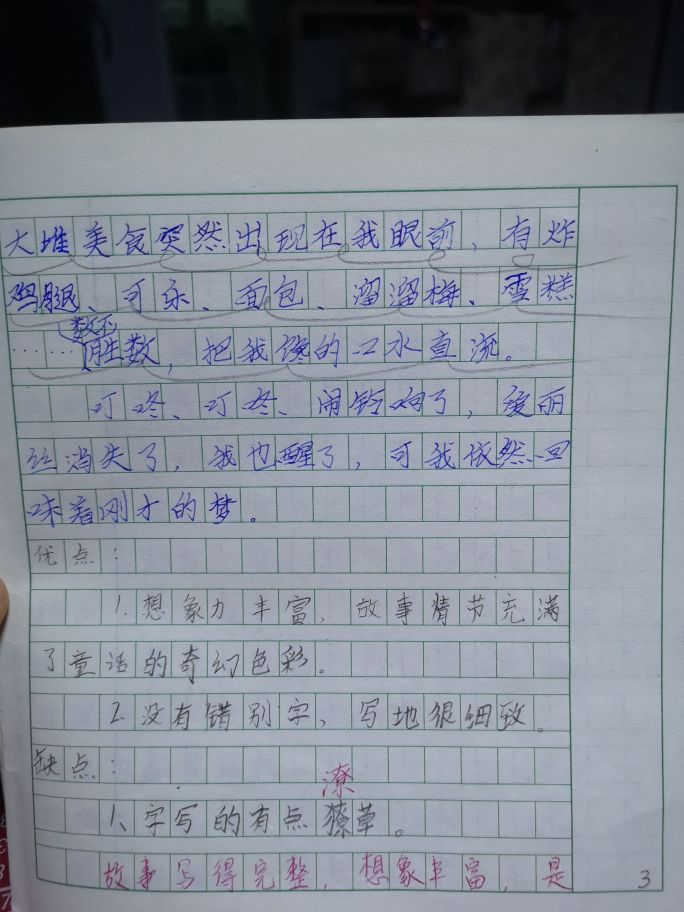 大堆美食突然出现在我眼前，有炸
鸡腿、可乐、面包、溜溜梅、雪糕
数不
……胜数，把我馋的口水直流。
叮咚、叮咚、闹铃响了，爱丽
丝消失了，我也醒了，可我依然回
味着刚才的梦。
优点：
1.想象力丰富，故事情节充满
了童话的奇幻色彩。
2.没有错别字，写地很细致。
缺点：
潦
1、字写的有点獠草。
故事写得完整，想象丰富，是
3